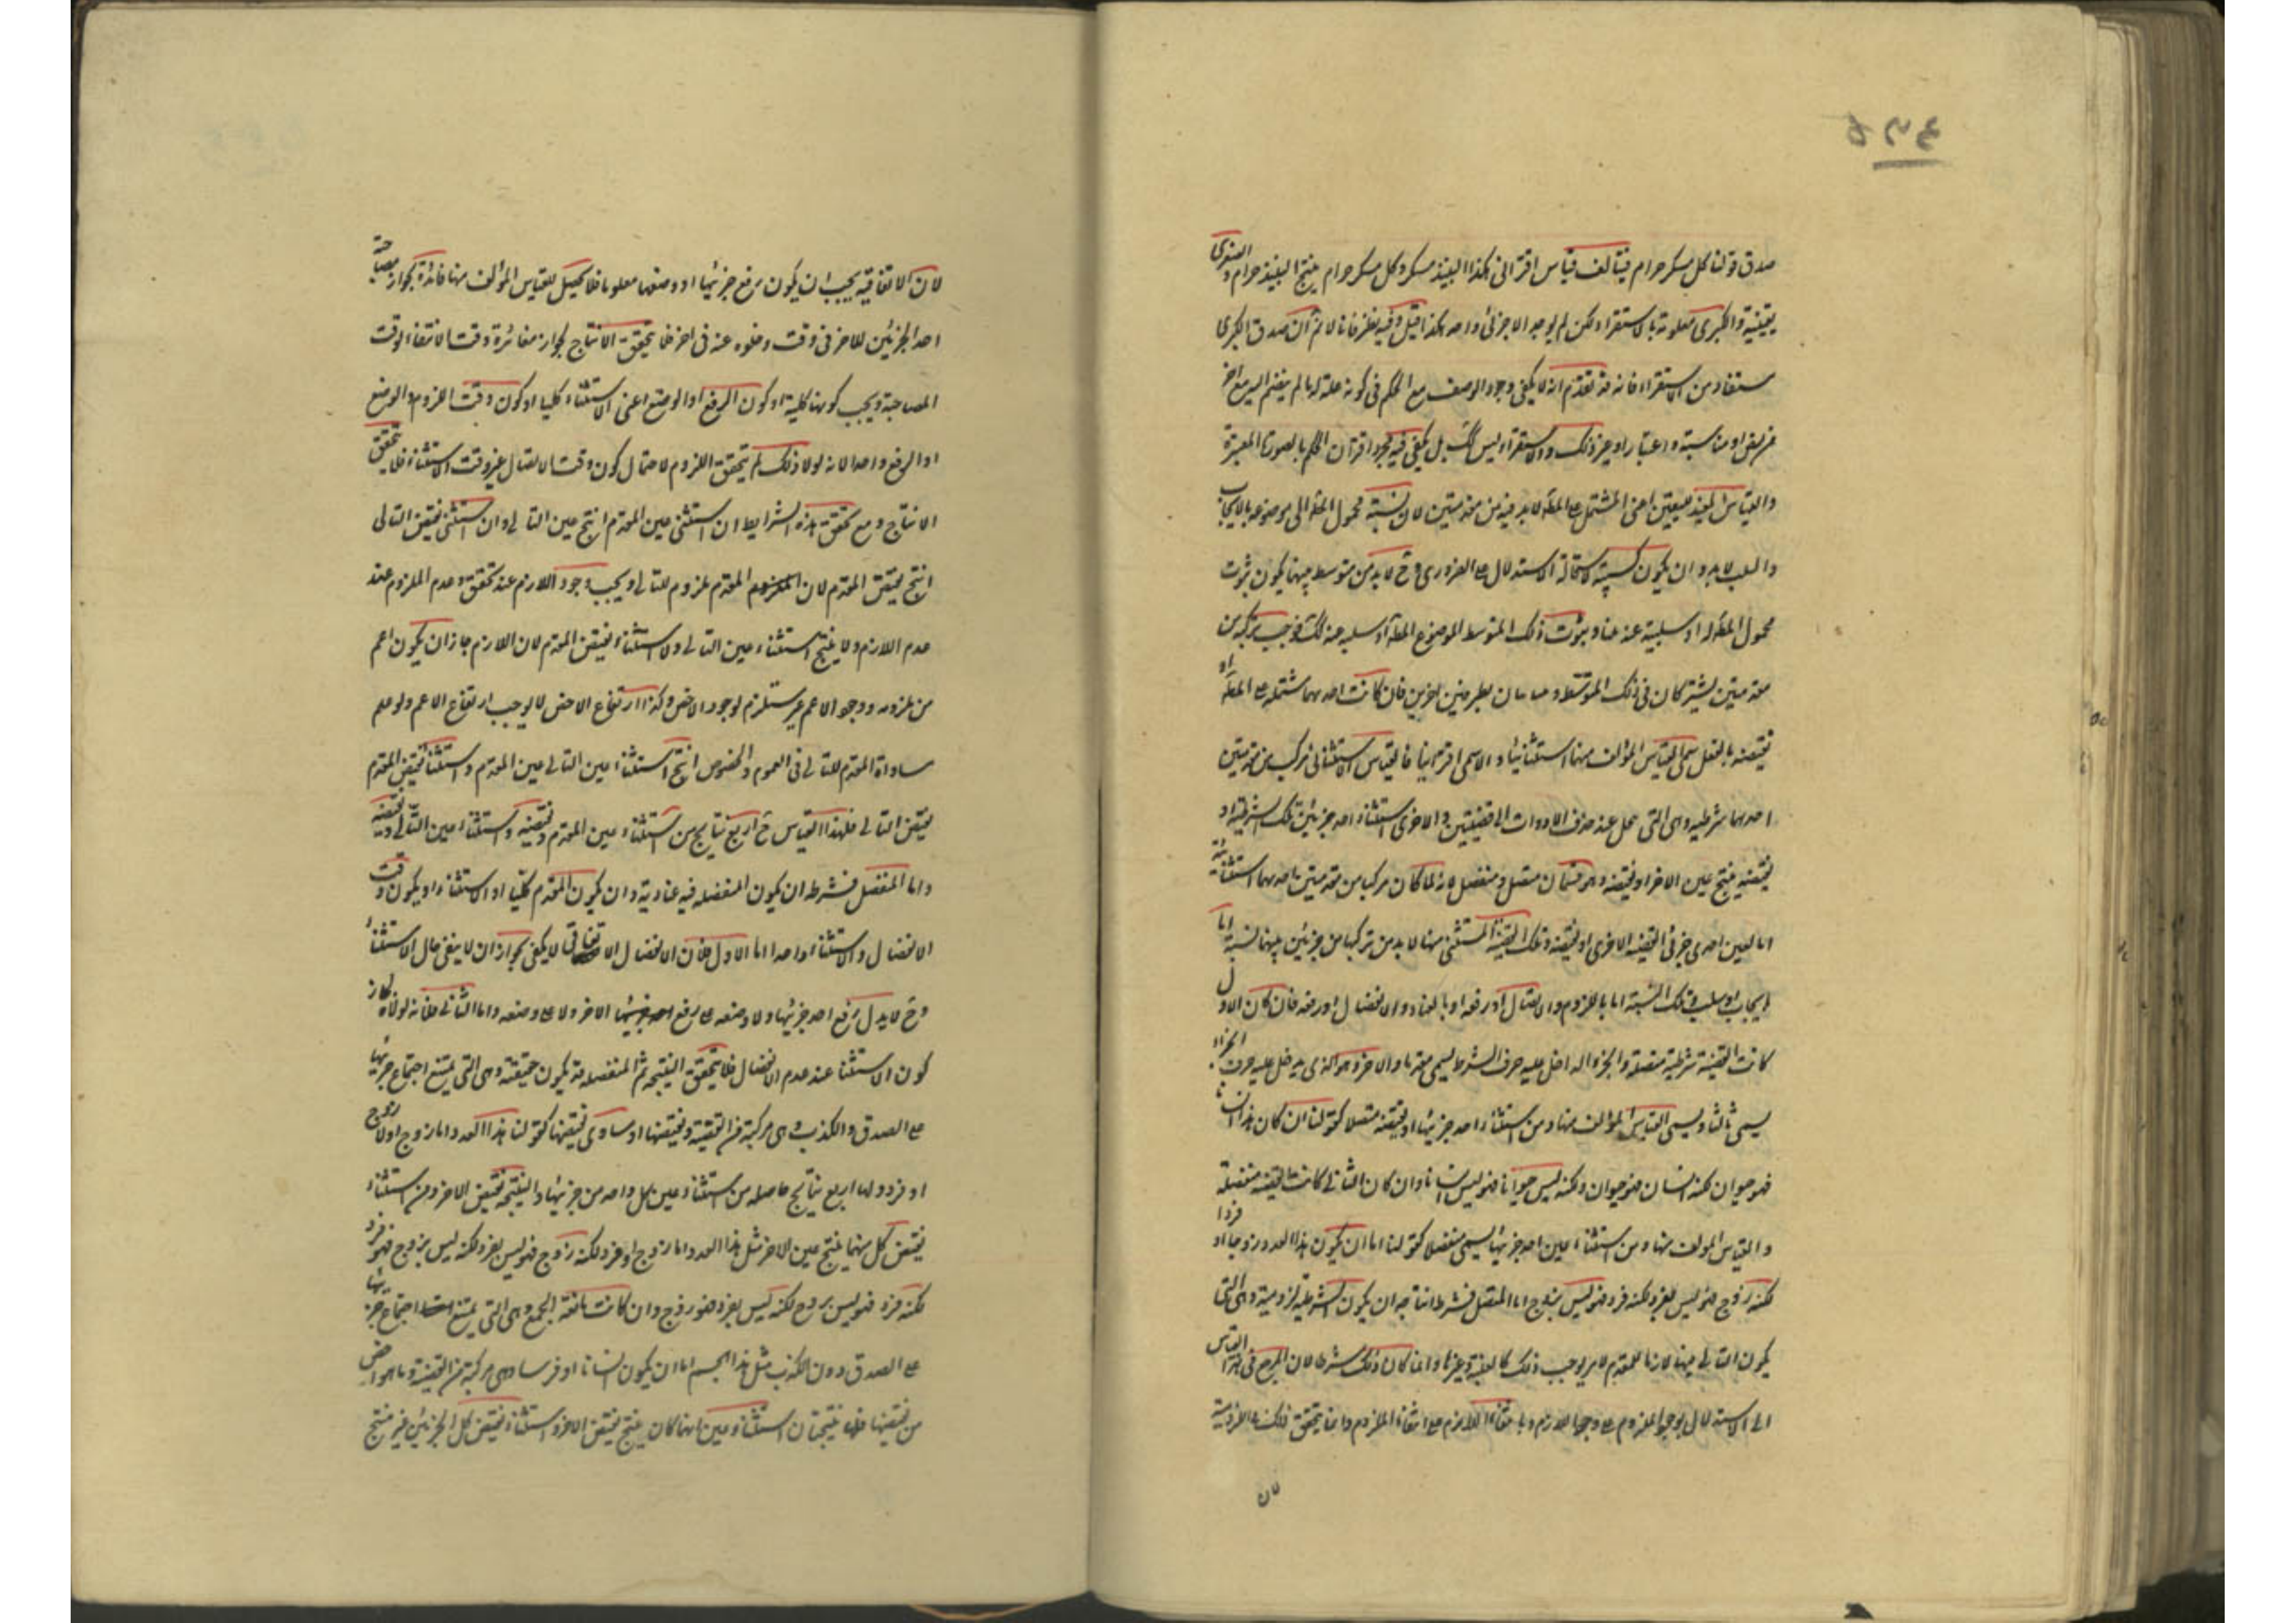 صدق قولنا كل مسكر حرام فيتألف قياس اقترانى هكذا النبيذ مسكر وكل مسكر حرام ينتج النبيذ حرام والصغرى
يقينية والكبرى معلومة بالاستقراء ولكن لم يوجد الا جزئى واحد هكذا قيل وفيه نظر فانا لا نم ان صدق الكبرى
مستفاد من الاستقراء فانه قد تقدم انه لا يكفى وجود الوصف مع الحكم فى كونه علة له ما لم ينضم اليه مع اخر
من نص او مناسبة واعتبار او غير ذلك والاستقراء ليس كك بل يكفى فيه مجرد اقتران الحكم بالصورة المعبرة
والقياس المفيد لليقين اعنى المشتمل على العلة لابد فيه من مقدمتين لان نسبة محمول المط الى موضوعه بالايجاب
والسلب لابد وان يكون كسبية لاستحالة الاستدلال على الضرورى وح لابد من متوسط بينهما يكون ثبوت
محمول المط له او سلبية عنه عنادا وثبوت ذلك المتوسط لموضوع المط او سلبه عنه كك فوجب تركبه من
مقدمتين يشتركان فى ذلك المتوسط ويتباينان بطرفين اخرين فان كانت احديهما مشتملة على المط او
نقيضه بالفعل سمى القياس المؤلف منهما استثنائيا والا سمى اقترانيا فالقياس الاستثنائى مركب من مقدمتين
احديهما شرطية وهى التى تحل عند حذف الادوات الى قضيتين والاخرى استثناء احد جزئين تلك الشرطية او
نقيضه فينتج عين الاخر او نقيضه وهو قسمان متصل ومنفصل لانه لما كان مركبا من مقدمتين احديهما استثنائية
اما لعين احدى جزئى القضية الاخرى او نقيضه وتلك القضية المستثنى منها لابد من تركبها من جزئين بينهما نسبة اما
ايجاب او سلب وتلك النسبة اما باللزوم والاتصال او رفعه او بالعناد والانفصال او رفعه فان كان الاول
كانت القضية شرطية متصلة والجزء الداخل عليه حرف الشرط يسمى مقدما والاخر وهو الذى يدخل عليه حرف الجزاء
يسمى تاليا ويسمى القياس المؤلف منها ومن استثناء احد جزئيها او نقيضه متصلا كقولنا ان كان هذا انسانا
فهو حيوان لكنه انسان فهو حيوان ولكنه ليس حيوانا فهو ليس انسانا وان كان الثانى كانت القضية منفصلة
والقياس المؤلف منها ومن استثناء عين احد جزئيها يسمى منفصلا كقولنا اما ان يكون هذا العدد زوجا او فردا
لكنه زوج فهو ليس بفرد لكنه فرد فهو ليس بزوج اما المتصل فشرط انتاجه ان يكون الشرطية لزومية وهى التى
يكون التالى فيها لازما للمقدم لامر يوجب ذلك كالعلية وغيرها وانما كان ذلك شرطا لان المرجع فى هذا القياس
الى الاستدلال بوجود الملزوم على وجود اللازم وبانتفاء اللازم على انتفاء الملزوم وانما يتحقق ذلك فى اللزومية
لان
لان الاتفاقية يجب ان يكون رفع جزئيها او وضعها معلوما فلا يحصل للقياس المؤلف منها فائدة لجواز مصاحبة
احد الجزئين للاخر فى وقت وخلوه عنه فى اخر فلا يتحقق الانتاج لجواز مغايرة وقت الانتفاء لوقت
المصاحبة ويجب كونها كلية او كون الرفع او الوضع اعنى الاستثناء كليا او كون وقت اللزوم والوضع
او الرفع واحدا لانه لولا ذلك لم يتحقق اللزوم لاحتمال كون وقت الاتصال غير وقت الاستثناء فلا يتحقق
الانتاج ومع تحقق هذه الشرايط ان استثنى عين المقدم انتج عين التالى وان استثنى نقيض التالى
انتج نقيض المقدم لان المقدم ملزوم للتالى ويجب وجود اللازم عند تحقق وعدم الملزوم عند
عدم اللازم ولا ينتج استثناء عين التالى ولا استثناء نقيض المقدم لان اللازم جاز ان يكون اعم
من ملزومه ووجود الاعم غير مستلزم لوجود الاخص وكذا ارتفاع الاخص لا يوجب ارتفاع الاعم ولو علم
مساواة المقدم للتالى فى العموم والخصوص انتج استثناء عين التالى عين المقدم واستثناء نقيض المقدم
نقيض التالى فلهذا القياس ح اربع نتايج من استثناء عين المقدم ونقيضه واستثناء عين التالى ونقيضه
واما المنفصل فشرطه ان يكون المنفصلة فيه عنادية وان يكون المقدم كليا او الاستثناء او يكون وقت
الانفصال والاستثناء واحدا اما الاول فلان الانفصال الاتفاقى لا يكفى لجواز ان لا يبقى حال الاستثناء
وح لا يدل رفع احد جزئيها ولا وضعه على رفع الاخر ولا على وضعه واما الثانى فلانه لولاه لجاز
كون الاستثناء عند عدم الانفصال فلا يتحقق النتيجة ثم المنفصلة قد يكون حقيقية وهى التى يمتنع اجتماع جزئيها
على الصدق والكذب وهى مركبة من القضية ونقيضها او مساوى نقيضها كقولنا هذا العدد اما زوج او لا زوج
او فرد ولها اربع نتايج حاصلة من استثناء عين كل واحد من جزئيها والنتيجة نقيض الاخر ومن استثناء
نقيض كل منهما ينتج عين الاخر مثل هذا العدد اما زوج او فرد لكنه زوج فهو ليس بفرد لكنه ليس بزوج فهو فرد
لكنه فرد فهو ليس بزوج لكنه ليس بفرد فهو زوج وان كانت مانعة الجمع وهى التى يمتنع اجتماع جزئيها
على الصدق دون الكذب مثل هذا الجسم اما ان يكون انسانا او فرسا وهى مركبة من القضية وما هو اخص
من نقيضها فله نتيجتان استثناء عين ايهما كان ينتج نقيض الاخر واستثناء نقيض كل الجزئين غير منتج